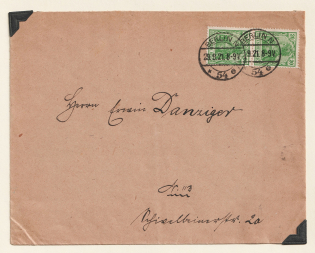 BERLIN N
29.9.21.8-9V.
* 54 e
BERLIN N
9.21.8-9V.
54 e
Herrn Erwin Danziger
N 113
Schivelbeinerstr. 2a